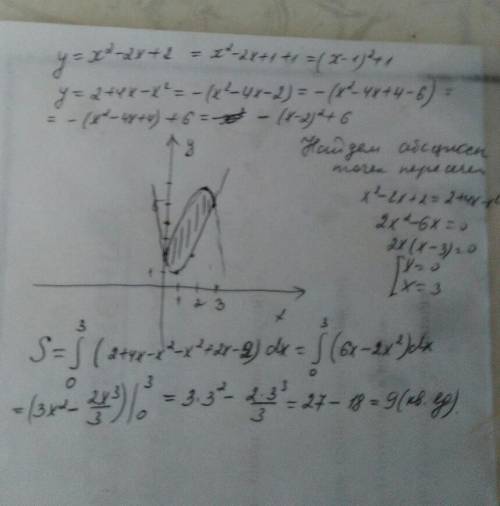 y = x² - 2x + 2 = x² - 2x + 1 + 1 = (x - 1)² + 1
y = 2 + 4x - x² = -(x² - 4x - 2) = -(x² - 4x + 4 - 6) =
= -(x² - 4x + 4) + 6 = -(x - 2)² + 6
Найдем абсциссы
точек пересеч
x² - 2x + 2 = 2 + 4x - x²
2x² - 6x = 0
2x(x - 3) = 0
[x = 0
x = 3
y
1
1 2 3
x
S = ∫₀³ (2 + 4x - x² - x² + 2x - 2) dx = ∫₀³ (6x - 2x²) dx
= (3x² - 2x³/3) |₀³ = 3·3² - 2·3³/3 = 27 - 18 = 9 (кв. ед).